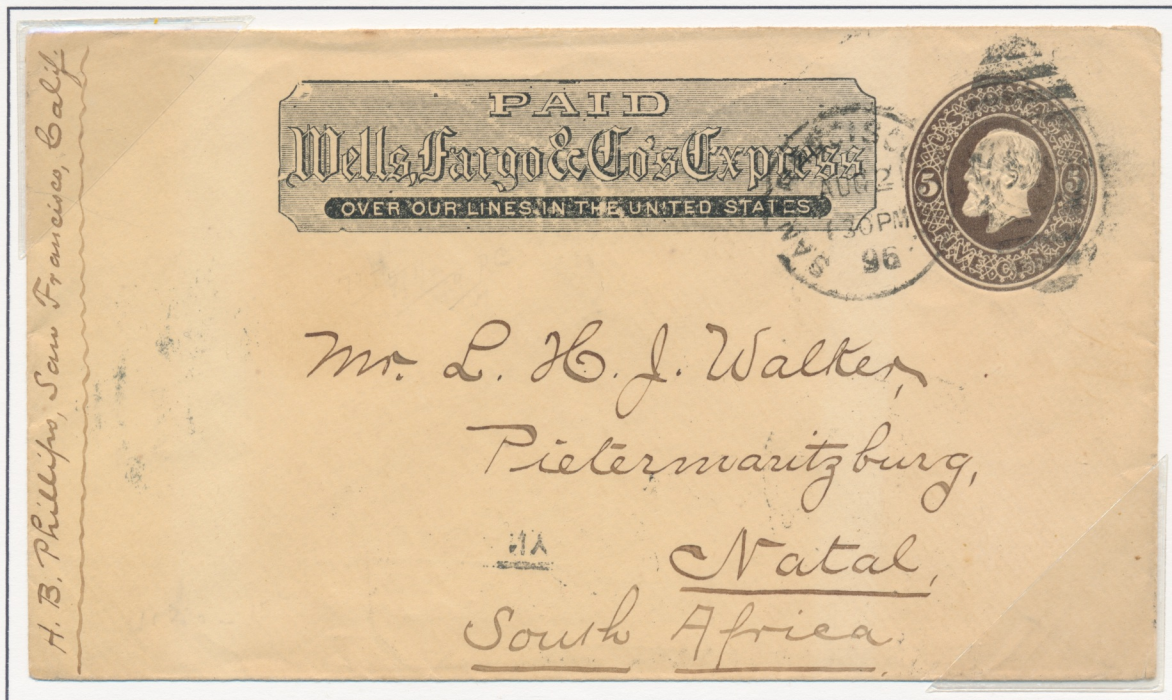 H. B. Phillips, San Francisco, Calif.
PAID
Wells, Fargo & Co's Express
OVER OUR LINES IN THE UNITED STATES
SAN FRANCISCO
AUG 2
130 PM
96
5 5
FIVE CENTS
Mr. L. H. J. Walker,
Pietermaritzburg,
Natal,
South Africa.